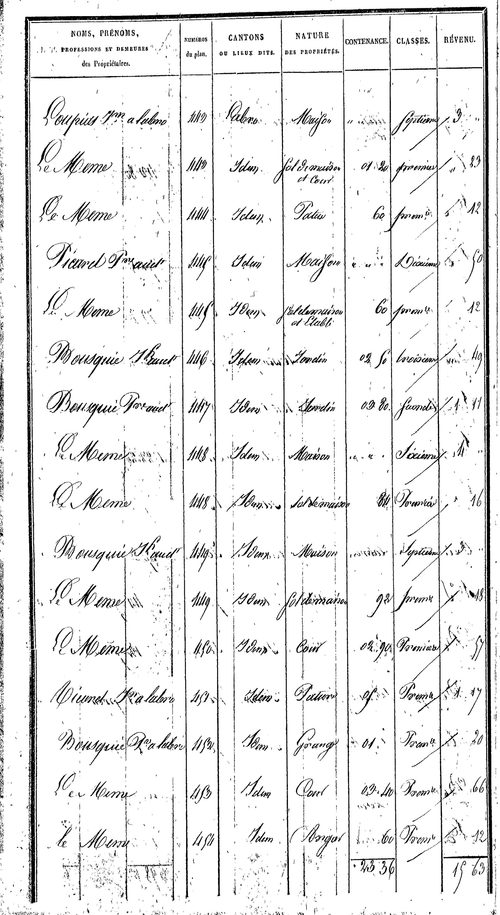 NOMS, PRÉNOMS, PROFESSIONS ET DEMEURES des Propriétaires. NUMÉROS du plan. CANTONS OU LIEUX DITS. NATURE DES PROPRIÉTÉS. CONTENANCE. CLASSES. RÉVENU.
a labro 443 Labro Maison Septieme 3
Le Meme 443 Idem Sol de maison et Cour 01 20 premiere 23
Le Meme 444 Idem Patu 60 prem.re 12
Picard P.re audt 445 Idem Maison 50
Le Meme 445 Idem Sol de maison et Etable 60 prem.re 12
Bousquie audt 446 Idem Jardin 02 50 troisieme 49
Bousquie P.re audt 447 Idem Jardin 03 80 Seconde 1 11
Le Meme 448 Idem Maison Sixieme 4
Le Meme 448 Idem Sol de maison 84 Premiere 16
Bousquie audt 449 Idem Maison Septieme 3
Le Meme 449 Idem Sol de maison 92 prem.re 18
Le Meme 450 Idem Cour 02 90 Premiere 57
a labro 451 Idem Patu Prem.re 1 17
Bousquie P.re a labro 452 Idem Grange 01 Prem.re 20
Le Meme 453 Idem Cour 03 40 Prem.re 66
le Meme 454 Idem Angar 60 Prem.re 12
23 36 15 63